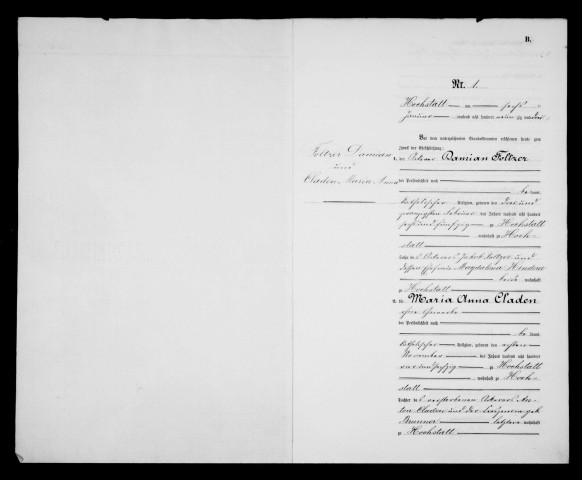 B.
Nr. 1.
Hochstatt am sechs
Januar tausend acht hundert neun zig und drei
Vor dem unterzeichneten Standesbeamten erschienen heute zum
Zweck der Eheschließung:
Foltzer Damian
und
Claden Maria Anna
1. der Ackerer Damian Foltzer
der Persönlichkeit nach
be kannt,
katholischer Religion, geboren den drei und
zwanzigsten Februar des Jahres tausend acht hundert
sechs und fünfzig zu Hochstatt
, wohnhaft zu Hoch-
statt
Sohn des Ackerers Jakob Foltzer und
dessen Ehefrau Magdalena
beide wohnhaft
zu Hochstatt
2. die Maria Anna Claden
ohne Gewerbe
der Persönlichkeit nach
be kannt,
katholischer Religion, geboren den ersten
November des Jahres tausend acht hundert
und sechzig zu Hochstatt
, wohnhaft zu Hoch-
statt
Tochter des verstorbenen Ackerers An-
ton Claden und der geb.
Brunner letztere wohnhaft
zu Hochstatt